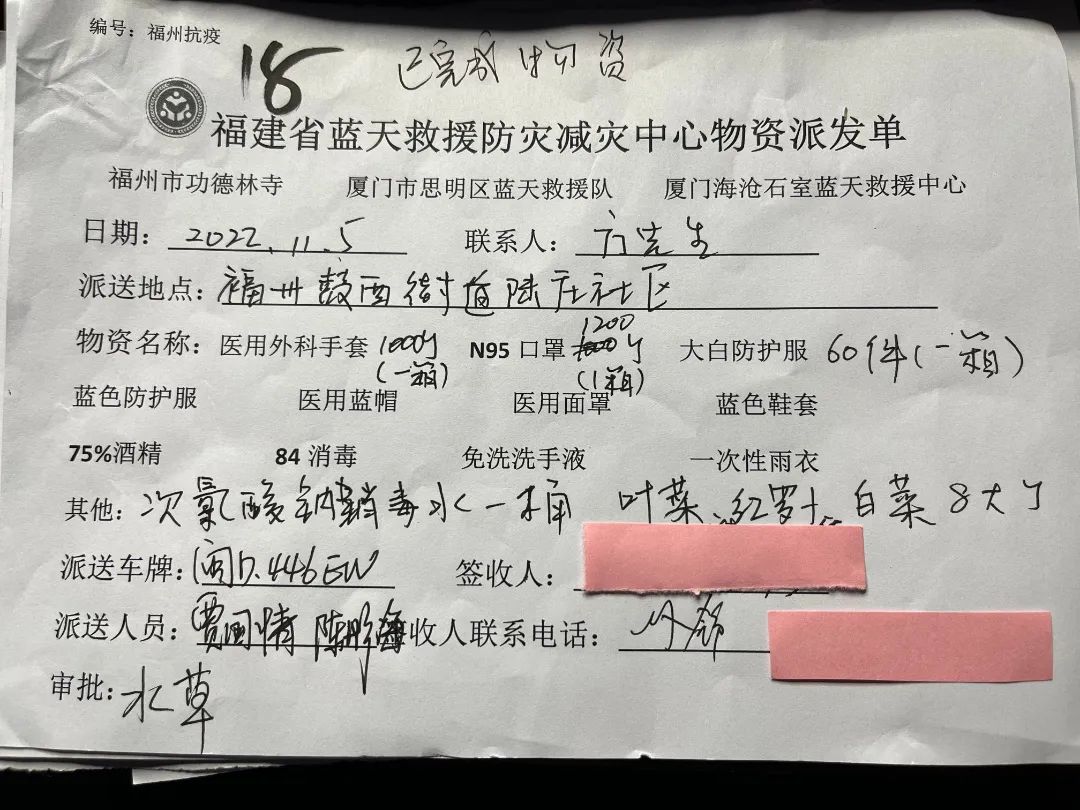 编号：福州抗疫
18 已完成物资
福建省蓝天救援防灾减灾中心物资派发单
福州市功德林寺 厦门市思明区蓝天救援队 厦门海沧石室蓝天救援中心
日期：2022.11.5 联系人：方先生
派送地点：福州鼓西街道陆庄社区
物资名称：医用外科手套 1000个（一箱） N95 口罩 1200个（1箱） 大白防护服 60件（一箱）
蓝色防护服 医用蓝帽 医用面罩 蓝色鞋套
75%酒精 84 消毒 免洗洗手液 一次性雨衣
其他：次氯酸钠消毒水一桶 叶菜、红罗卜、白菜 8大个
派送车牌：闽D.446EW 签收人：
派送人员：贾国情 收人联系电话：
审批：水草